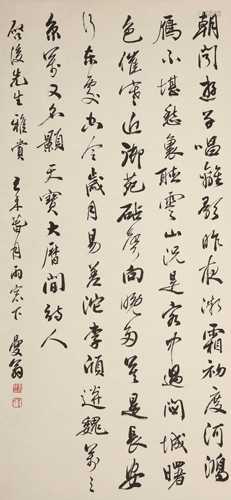 朝聞遊子唱離歌昨夜微霜初度河鴻
雁不堪愁裏聽雲山況是客中過關城曙
色催寒近御苑砧聲向晚多莫是長安
行樂處空令歲月易蹉跎李頎送魏萬之
京萬又名顥天寶大曆間詩人
啟後先生雅賞 未莓月雨窗下 曼翁